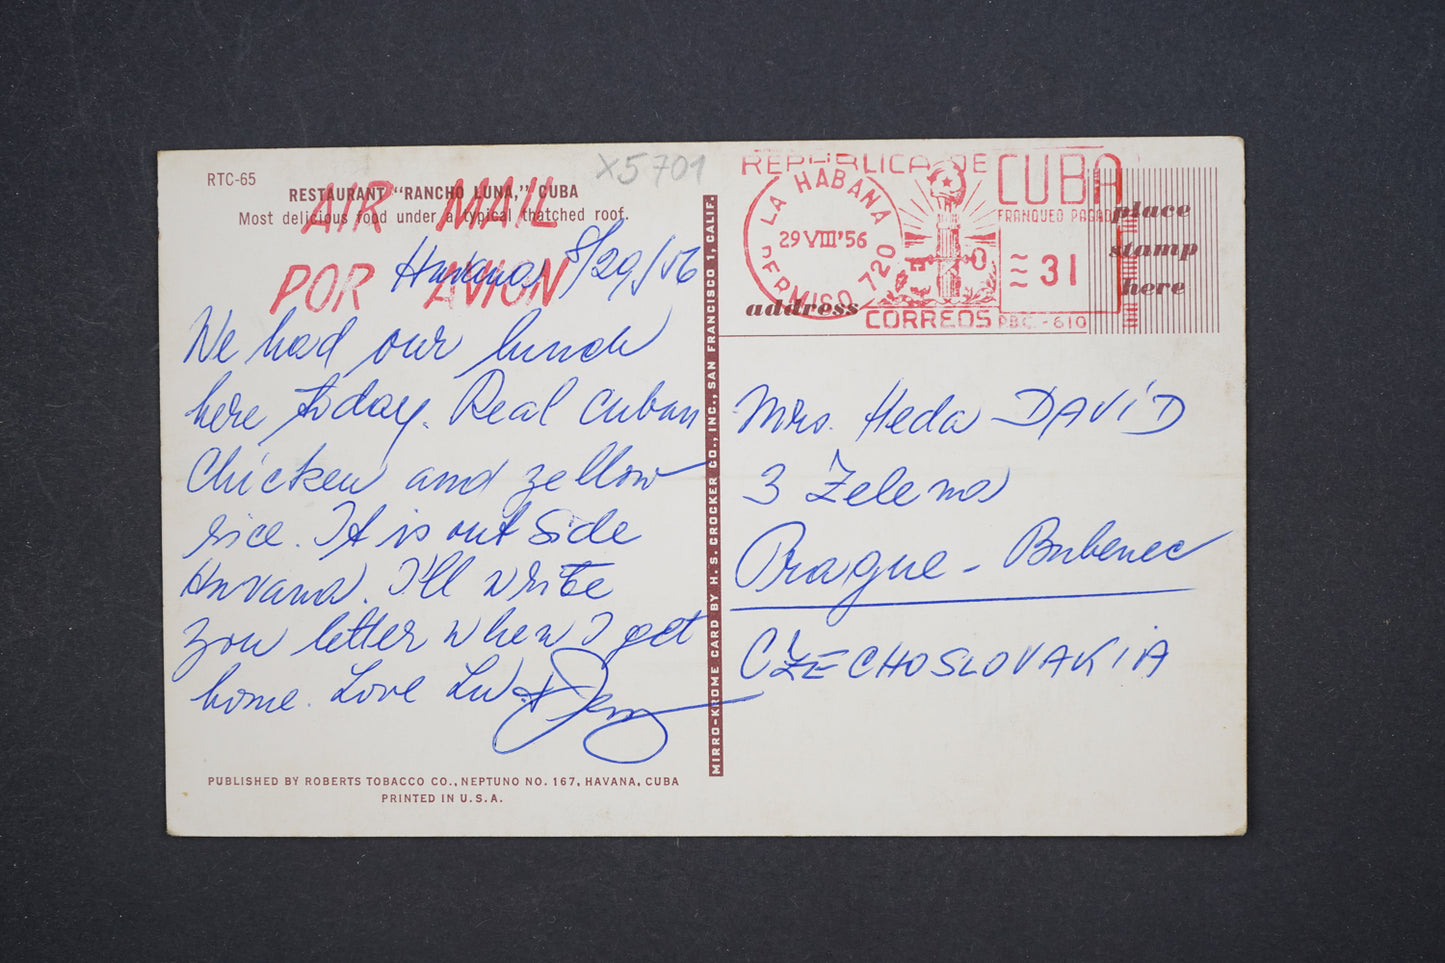 RTC-65
X5701
RESTAURANT "RANCHO LUNA," CUBA
Most delicious food under a typical thatched roof.
AIR MAIL
POR AVION
Havana 8/29/56
We had our lunch
here today. Real Cuban
Chicken and yellow
rice. It is out side
Havana. I'll write
you letter when I get
home. Love Lu &
PUBLISHED BY ROBERTS TOBACCO CO., NEPTUNO NO. 167, HAVANA, CUBA
PRINTED IN U.S.A.
MIRRO-KROME CARD BY H. S. CROCKER CO., INC., SAN FRANCISCO 1, CALIF.
REPUBLICA DE CUBA
LA HABANA
29 VIII '56
PERMISO 720
FRANQUEO PAGADO
31
CORREOS PBC.-610
place
stamp
here
address
Mrs. Heda DAVID
3 Zelena
Prague - Bubenec
CZECHOSLOVAKIA